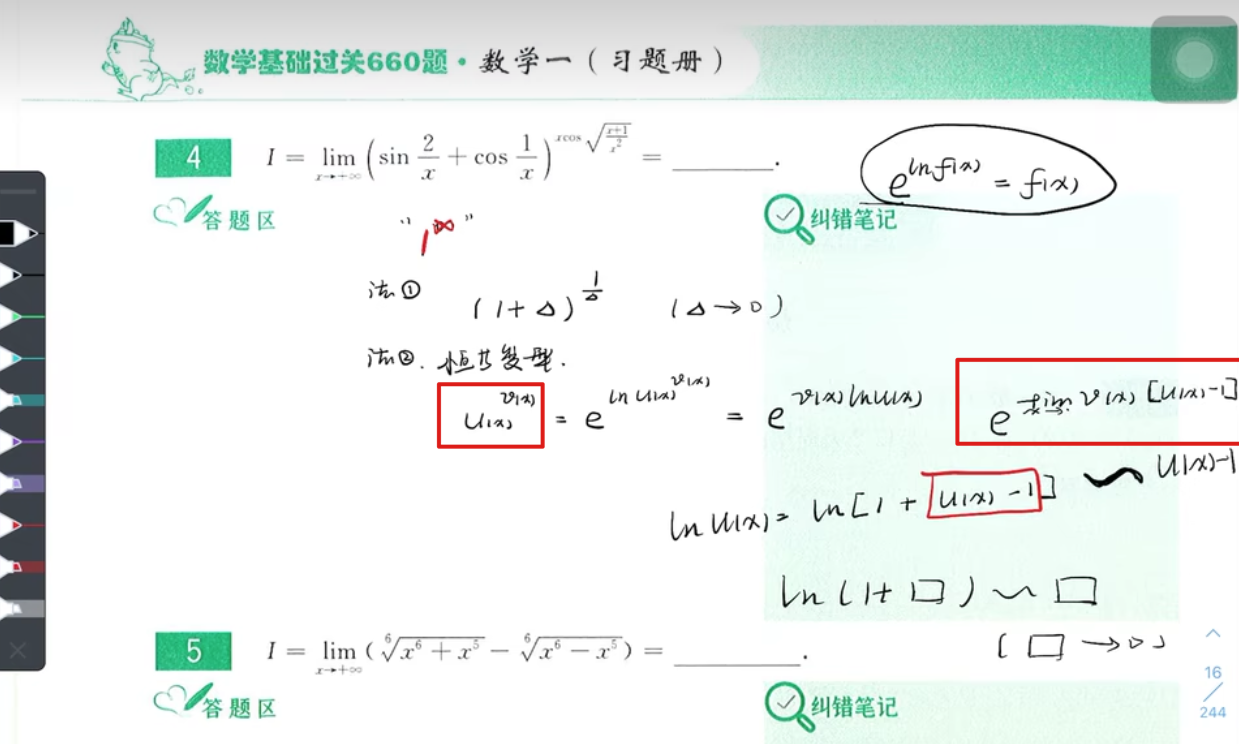 数学基础过关660题·数学一(习题册)
4 I = lim x→+∞ (sin 2/x + cos 1/x)^{x cos √((x+1)/x²)} = ______.
e^{ln f(x)} = f(x)
答题区
纠错笔记
“1^∞”
法① (1+Δ)^{1/Δ} (Δ→0)
法②. 恒等变型.
u(x)^{v(x)} = e^{ln u(x)^{v(x)}} = e^{v(x) ln u(x)} e^{lim v(x) [u(x)-1]}
ln u(x) = ln[1 + u(x) - 1] ~ u(x)-1
ln(1+□) ~ □
(□→0)
5 I = lim x→+∞ (⁶√(x⁶ + x⁵) − ⁶√(x⁶ − x⁵)) = ______.
16/244
答题区
纠错笔记